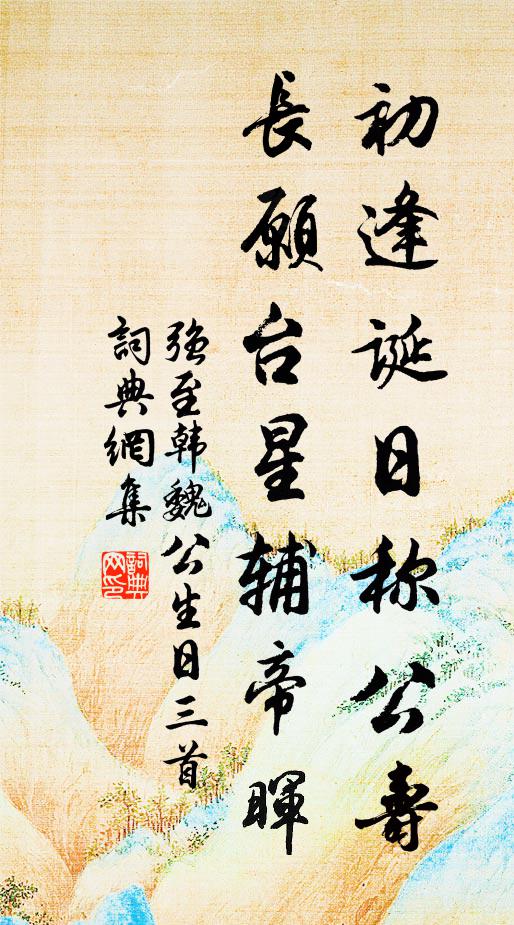 初逢誕日称公壽
長願台星辅帝暉
強至韩魏公生日三首
詞典網集
詞典
网印